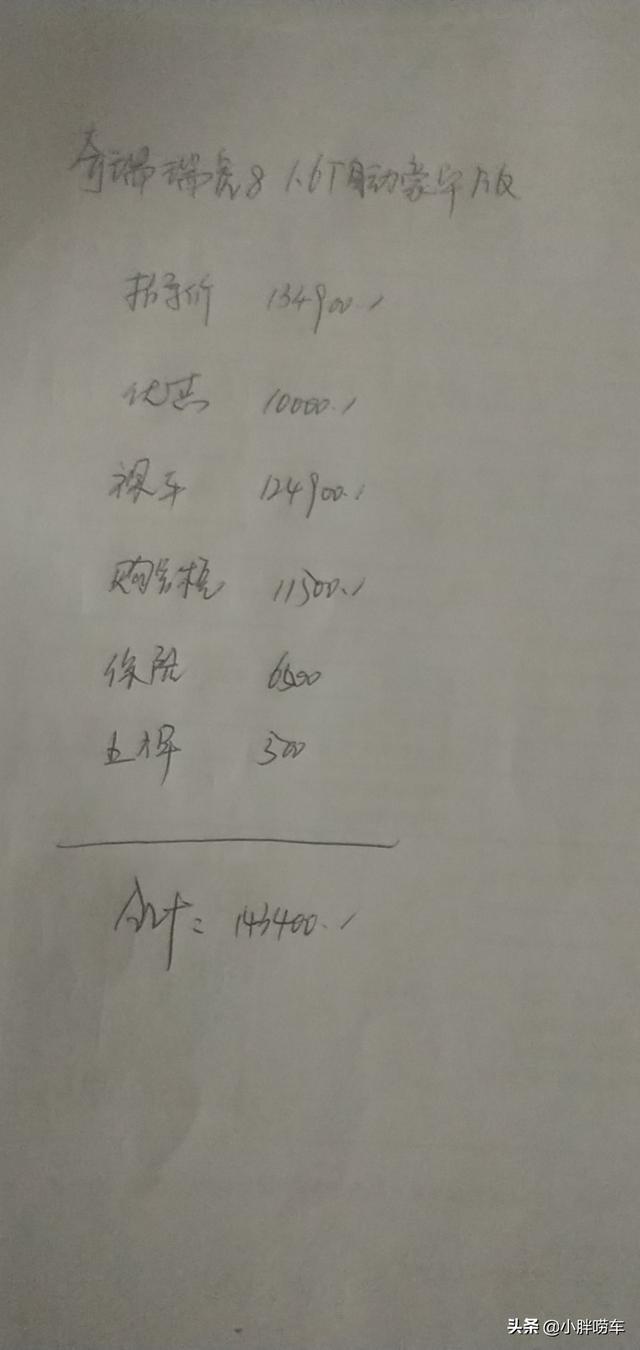 奇瑞瑞虎8 1.6T自动豪华版
指导价 134900.
优惠 10000.
裸车 124900.
购台税 11500.
保险 6500
上牌 500
合计= 143400.
头条 @小胖唠车